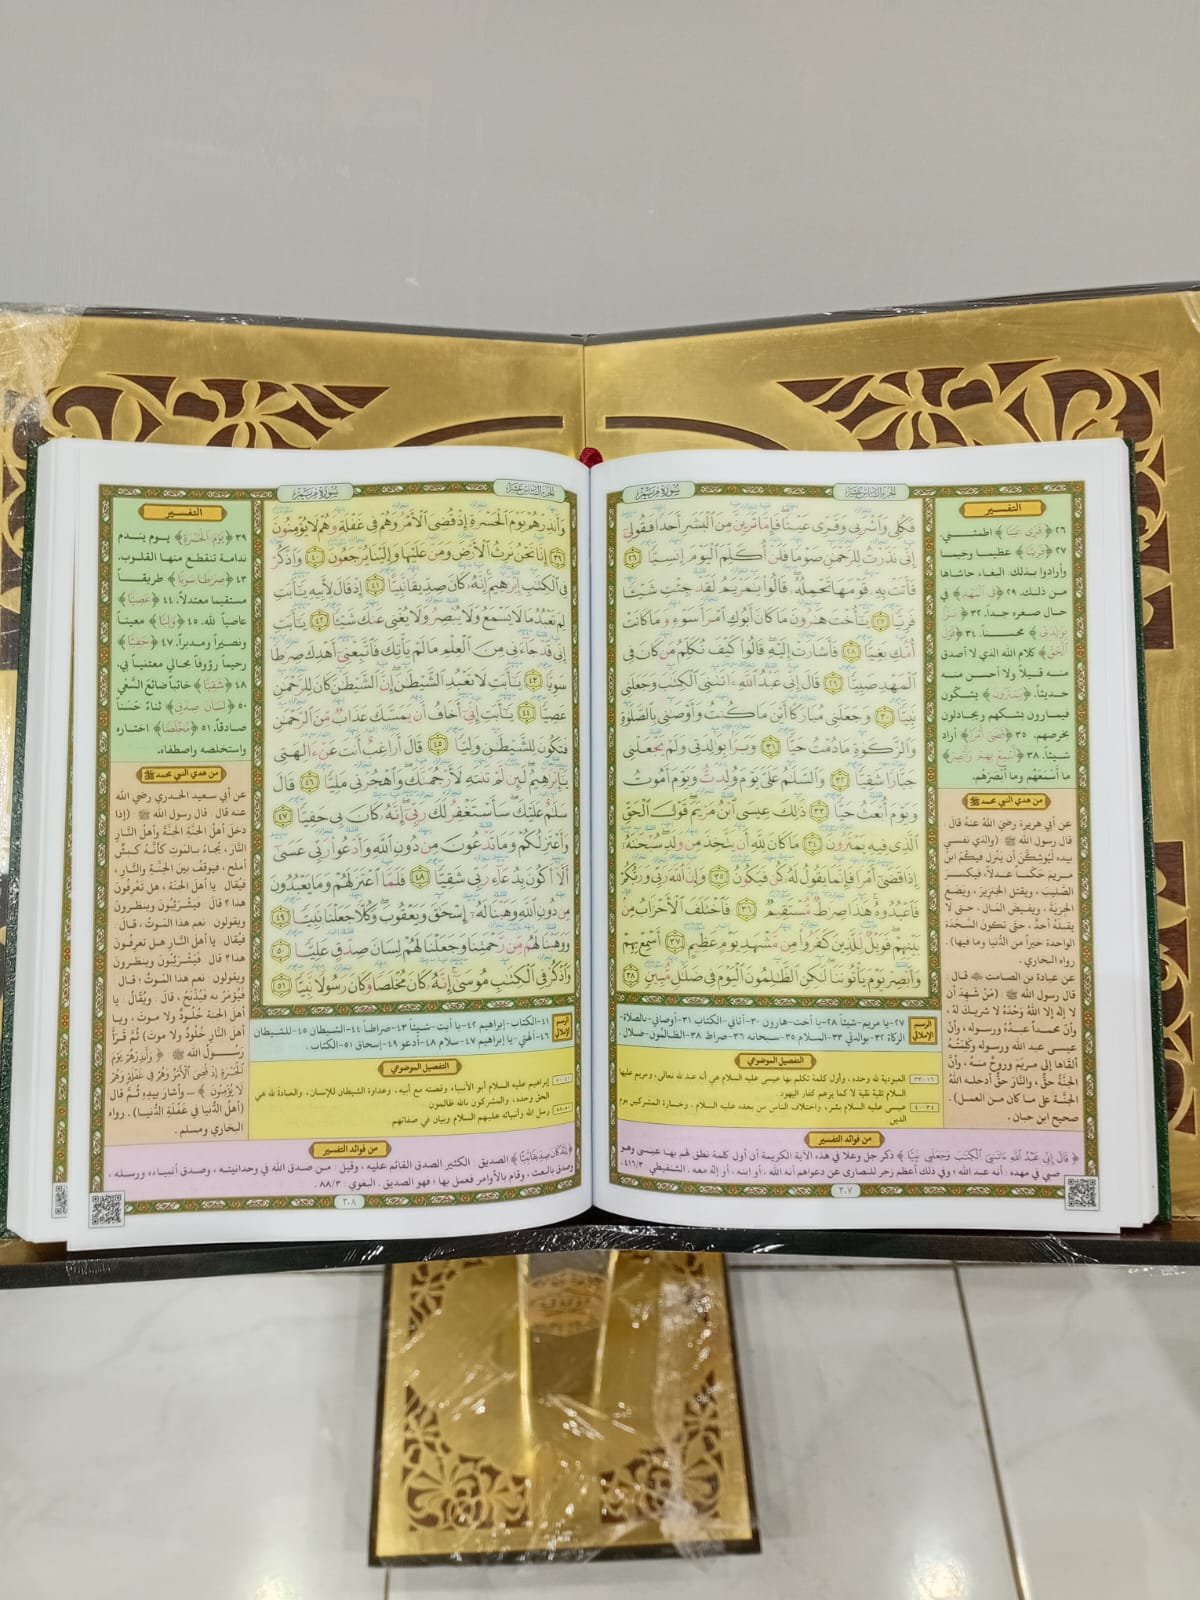 سورة مريم
الجزء السادس عشر
فَكُلِي وَاشْرَبِي وَقَرِّي عَيْنًا فَإِمَّا تَرَيِنَّ مِنَ الْبَشَرِ أَحَدًا فَقُولِي
إِنِّي نَذَرْتُ لِلرَّحْمَٰنِ صَوْمًا فَلَنْ أُكَلِّمَ الْيَوْمَ إِنسِيًّا ٢٦
فَأَتَتْ بِهِ قَوْمَهَا تَحْمِلُهُ قَالُوا يَٰمَرْيَمُ لَقَدْ جِئْتِ شَيْـًٔا
فَرِيًّا ٢٧ يَٰٓأُخْتَ هَٰرُونَ مَا كَانَ أَبُوكِ ٱمْرَأَ سَوْءٍ وَمَا كَانَتْ
أُمُّكِ بَغِيًّا ٢٨ فَأَشَارَتْ إِلَيْهِ قَالُوا كَيْفَ نُكَلِّمُ مَن كَانَ فِي
ٱلْمَهْدِ صَبِيًّا ٢٩ قَالَ إِنِّي عَبْدُ ٱللَّهِ ءَاتَىٰنِيَ ٱلْكِتَٰبَ وَجَعَلَنِي
نَبِيًّا ٣٠ وَجَعَلَنِي مُبَارَكًا أَيْنَ مَا كُنتُ وَأَوْصَٰنِي بِٱلصَّلَوٰةِ
وَٱلزَّكَوٰةِ مَا دُمْتُ حَيًّا ٣١ وَبَرًّۢا بِوَٰلِدَتِي وَلَمْ يَجْعَلْنِي
جَبَّارًا شَقِيًّا ٣٢ وَٱلسَّلَٰمُ عَلَيَّ يَوْمَ وُلِدتُّ وَيَوْمَ أَمُوتُ
وَيَوْمَ أُبْعَثُ حَيًّا ٣٣ ذَٰلِكَ عِيسَى ٱبْنُ مَرْيَمَ قَوْلَ ٱلْحَقِّ
ٱلَّذِي فِيهِ يَمْتَرُونَ ٣٤ مَا كَانَ لِلَّهِ أَن يَتَّخِذَ مِن وَلَدٍ سُبْحَٰنَهُ
إِذَا قَضَىٰٓ أَمْرًا فَإِنَّمَا يَقُولُ لَهُ كُن فَيَكُونُ ٣٥ وَإِنَّ ٱللَّهَ رَبِّي وَرَبُّكُمْ
فَٱعْبُدُوهُ هَٰذَا صِرَٰطٌ مُّسْتَقِيمٌ ٣٦ فَٱخْتَلَفَ ٱلْأَحْزَابُ مِنۢ
بَيْنِهِمْ فَوَيْلٌ لِّلَّذِينَ كَفَرُوا مِن مَّشْهَدِ يَوْمٍ عَظِيمٍ ٣٧ أَسْمِعْ بِهِمْ
وَأَبْصِرْ يَوْمَ يَأْتُونَنَا لَٰكِنِ ٱلظَّٰلِمُونَ ٱلْيَوْمَ فِي ضَلَٰلٍ مُّبِينٍ ٣٨
التفسير
٢٦ ﴿وَقَرِّي عَيْنًا﴾ اطمئني.
٢٧ ﴿فَرِيًّا﴾ عظيما رجيما
وأرادوا بذلك البغاء حاشاها
من ذلك. ٢٩ ﴿فِي الْمَهْدِ﴾ في
حال صغره جداً. ٣٢ ﴿بَرًّا
بِوَالِدَتِي﴾ محسناً. ٣٤ ﴿قَوْلَ
الْحَقِّ﴾ كلام الله الذي لا أصدق
منه قيلاً ولا أحسن منه
حديثاً. ﴿يَمْتَرُونَ﴾ يشكون
فيمارون بشكهم ويجادلون
بخرصهم. ٣٥ ﴿قَضَى أَمْرًا﴾ أراد
شيئاً. ٣٨ ﴿أَسْمِعْ بِهِمْ وَأَبْصِرْ﴾
ما أسمعهم وما أبصرهم.
من هدي النبي محمد ﷺ
عن أبي هريرة رضي الله عنه قال :
قال رسول الله ﷺ : (والذي نفسي
بيده ليُوشكنَّ أن ينزل فيكم ابن
مريم حَكَماً عدلاً، فيكسر
الصليب، ويقتل الخنزير، ويضع
الجزية، ويفيض المال، حتى لا
يقبله أحدٌ، حتى تكون السَّجْدة
الواحدة خيراً من الدُّنيا وما فيها).
رواه البخاري.
عن عبادة بن الصامت قال :
قال رسول الله ﷺ : (مَنْ شَهِدَ أن
لا إله إلا الله وَحْدَهُ لا شريك له ،
وأنَّ محمداً عبدُهُ ورسوله، وأنَّ
عيسى عبد الله ورسوله وكلمته
ألقاها إلى مريَمَ وروحٌ منه ، وأنَّ
الجنَّةَ حقٌّ، والنَّارَ حقٌّ أدخله اللهُ
الجنَّةَ على ما كان من العمل).
صحيح ابن حبان .
الرسم الإملائي
٢٧-يا مريم-شيئاً ٢٨-يا أخت-هارون ٣٠-آتاني-الكتاب ٣١-أوصاني-بالصلاة-
الزكاة ٣٢-بوالدتي ٣٣-السلام ٣٥-سبحانه ٣٦-صراط ٣٨-الظالمون-ضلال .
التفصيل الموضوعي
١٦-٣٣ العبودية لله وحده، وأول كلمة تكلم بها عيسى عليه السلام هي أنه عبد لله تعالى، ومريم عليها
السلام تقية نقية لا كما يزعم كفار اليهود.
٣٤-٤٠ عيسى عليه السلام بشر، واختلاف الناس من بعده عليه السلام ، وخسارة المشركين يوم
الدين
من فوائد التفسير
﴿قَالَ إِنِّي عَبْدُ اللَّهِ ءَاتَىٰنِيَ الْكِتَٰبَ وَجَعَلَنِي نَبِيًّا﴾ ذكر جل وعلا في هذه الآية الكريمة أن أول كلمة نطق لهم بها عيسى وهو
صبي في مهده : أنه عبد الله ؛ وفي ذلك أعظم زجر للنصارى عن دعواهم أنه الله ، أو ابنه ، أو إله معه . الشنقيطي ٤١٦/٣.
٣٠٧
سورة مريم
الجزء السادس عشر
وَأَنذِرْهُمْ يَوْمَ ٱلْحَسْرَةِ إِذْ قُضِيَ ٱلْأَمْرُ وَهُمْ فِي غَفْلَةٍ وَهُمْ لَا يُؤْمِنُونَ
٣٩ إِنَّا نَحْنُ نَرِثُ ٱلْأَرْضَ وَمَنْ عَلَيْهَا وَإِلَيْنَا يُرْجَعُونَ ٤٠ وَٱذْكُرْ
فِي ٱلْكِتَٰبِ إِبْرَٰهِيمَ إِنَّهُ كَانَ صِدِّيقًا نَّبِيًّا ٤١ إِذْ قَالَ لِأَبِيهِ يَٰٓأَبَتِ
لِمَ تَعْبُدُ مَا لَا يَسْمَعُ وَلَا يُبْصِرُ وَلَا يُغْنِي عَنكَ شَيْـًٔا ٤٢ يَٰٓأَبَتِ
إِنِّي قَدْ جَآءَنِي مِنَ ٱلْعِلْمِ مَا لَمْ يَأْتِكَ فَٱتَّبِعْنِيٓ أَهْدِكَ صِرَٰطًا
سَوِيًّا ٤٣ يَٰٓأَبَتِ لَا تَعْبُدِ ٱلشَّيْطَٰنَ إِنَّ ٱلشَّيْطَٰنَ كَانَ لِلرَّحْمَٰنِ
عَصِيًّا ٤٤ يَٰٓأَبَتِ إِنِّيٓ أَخَافُ أَن يَمَسَّكَ عَذَابٌ مِّنَ ٱلرَّحْمَٰنِ
فَتَكُونَ لِلشَّيْطَٰنِ وَلِيًّا ٤٥ قَالَ أَرَاغِبٌ أَنتَ عَنْ ءَالِهَتِي
يَٰٓإِبْرَٰهِيمُ لَئِن لَّمْ تَنتَهِ لَأَرْجُمَنَّكَ وَٱهْجُرْنِي مَلِيًّا ٤٦ قَالَ
سَلَٰمٌ عَلَيْكَ سَأَسْتَغْفِرُ لَكَ رَبِّيٓ إِنَّهُ كَانَ بِي حَفِيًّا ٤٧
وَأَعْتَزِلُكُمْ وَمَا تَدْعُونَ مِن دُونِ ٱللَّهِ وَأَدْعُوا رَبِّي عَسَىٰٓ
أَلَّآ أَكُونَ بِدُعَآءِ رَبِّي شَقِيًّا ٤٨ فَلَمَّا ٱعْتَزَلَهُمْ وَمَا يَعْبُدُونَ
مِن دُونِ ٱللَّهِ وَهَبْنَا لَهُ إِسْحَٰقَ وَيَعْقُوبَ وَكُلًّا جَعَلْنَا نَبِيًّا ٤٩
وَوَهَبْنَا لَهُم مِّن رَّحْمَتِنَا وَجَعَلْنَا لَهُمْ لِسَانَ صِدْقٍ عَلِيًّا ٥٠
وَٱذْكُرْ فِي ٱلْكِتَٰبِ مُوسَىٰٓ إِنَّهُ كَانَ مُخْلَصًا وَكَانَ رَسُولًا نَّبِيًّا ٥١
التفسير
٣٩ ﴿يَوْمَ الْحَسْرَةِ﴾ يوم يندم
ندامة تنقطع منها القلوب.
٤٣ ﴿صِرَٰطًا سَوِيًّا﴾ طريقاً
مستقيما معتدلاً. ٤٤ ﴿عَصِيًّا﴾
عاصياً لله. ٤٥ ﴿وَلِيًّا﴾ معيناً
ونصيراً ومدبراً. ٤٧ ﴿حَفِيًّا﴾
رحيماً رؤوفاً بحالي معتنياً بي.
٤٨ ﴿شَقِيًّا﴾ خائباً ضائعَ السَّعْي
٥٠ ﴿لِسَانَ صِدْقٍ﴾ ثناءً حَسَناً
صادقاً. ٥١ ﴿مُخْلَصًا﴾ اختاره
واستخلصه واصطفاه.
من هدي النبي محمد ﷺ
عن أبي سعيد الخدري رضي الله
عنه قال : قال رسول الله ﷺ : (إذا
دخلَ أهلُ الجنَّةِ الجنَّةَ وأهلُ النَّارِ
النَّارَ، يُجاءُ بالموتِ كأنَّه كبشٌ
أملح ، فيوقفُ بين الجنَّةِ والنَّارِ،
فيُقال : يا أهل الجنة، هل تعرفون
هذا؟ قال : فَيَشْرَئِبُّون وينظرون
ويقولون : نعم هذا الموت ، قال :
فيُقال : يا أهلَ النَّارِ هل تعرفونَ
هذا؟ قال : فَيَشْرَئِبُّونَ وينظرونَ
ويقولون : نعم هذا الموت ؛ قال :
فيُؤمَرُ به فيُذبَحُ، قال : ويُقالُ : يا
أهل الجنة خُلُودٌ ولا موتَ، ويا
أهل النَّارِ خُلُودٌ ولا موت) ثم قرأ
رسولُ الله ﷺ : ﴿وَأَنذِرْهُمْ يَوْمَ
الْحَسْرَةِ إِذْ قُضِيَ الْأَمْرُ وَهُمْ فِي غَفْلَةٍ وَهُمْ
لَا يُؤْمِنُونَ﴾ ... وأشار بيدِهِ ثُمَّ قال :
(أهلُ الدُّنيا في غَفْلَةِ الدُّنيا). رواه
البخاري ومسلم .
الرسم الإملائي
٤١-الكتاب-إبراهيم ٤٢-يا أبت-شيئاً ٤٣-صراطاً ٤٤-الشيطان ٤٥-للشيطان
٤٦-آلهتي-يا إبراهيم ٤٧-سلام ٤٨-أدعو ٤٩-إسحاق ٥١-الكتاب .
التفصيل الموضوعي
٤١-٥٠ إبراهيم عليه السلام أبو الأنبياء وقصته مع أبيه، وعداوة الشيطان للإنسان، والعبادة لله هي
الحق وحده، والمشركون بالله ظالمون
٥١-٥٨ رسل الله وأنبيائه عليهم السلام وبيان في صفاتهم.
من فوائد التفسير
﴿إِنَّهُ كَانَ صِدِّيقًا نَّبِيًّا﴾ الصديق : الكثير الصدق القائم عليه ، وقيل : من صدق الله في وحدانيته ، وصدق أنبياءه ورسله ،
وصدق بالبعث ، وقام بالأوامر فعمل بها ؛ فهو الصديق . البغوي : ٨٨/٣ .
٣٠٨